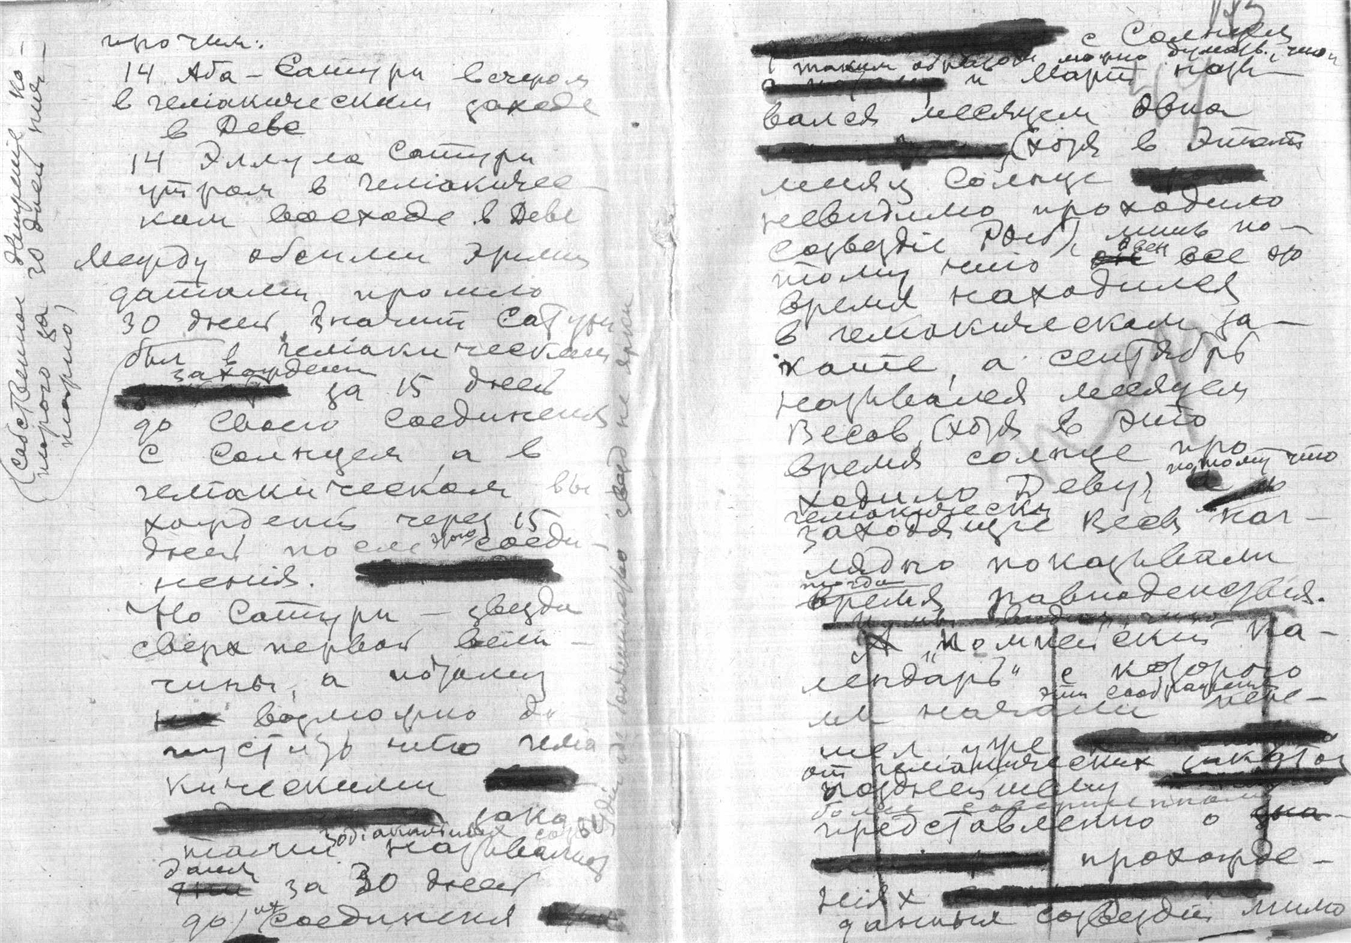 прочим.
14 Аба – Сатурн вечером
в геліакическом заходе
в Деве
14 Эллула Сатурн
утром в геліакичес-
ком восходе в Деве
Между обеими этими
датами прошло
30 дней. Значит Сатурн
был в геліакическом
захождении
за 15 дней
до своего соединенія
с Солнцем, а в
геліакическом вы
хождении через 15
дней после этого соеди-
ненія.
Но Сатурн – звезда
сверх первой вели-
чины, а потому
возможно до
пустить что геліа
кическими
зака
зодіакальных созв
тами назывались
даже
за 30 дней
до их соединенія
(собственное движение ко-
торого за 30 дней
ничтожно)
с Солнцем
таким образом можно думать, что
и Март назы-
вался месяцем Овна
(хотя в этот
месяц Солнце
невидимо проходило
созвездіе Рыб), лишь по-
тому что Овен все это
время находился
в геліакическом за-
кате, а сентябрь
назывался месяцем
Весов (хотя в это
время солнце про
ходило Деву) потому что
геліакически
заходящіе Весы наг-
лядно показывали
тогда
время равноденствія.
А "Помпейский ка-
лендарь" с которого
мы начали
эти соображения пере-
шел уже
от геліакических закатов
позднейшему
более совершенному
представленію о
прохожде-
ніях
данныя созвездій мимо